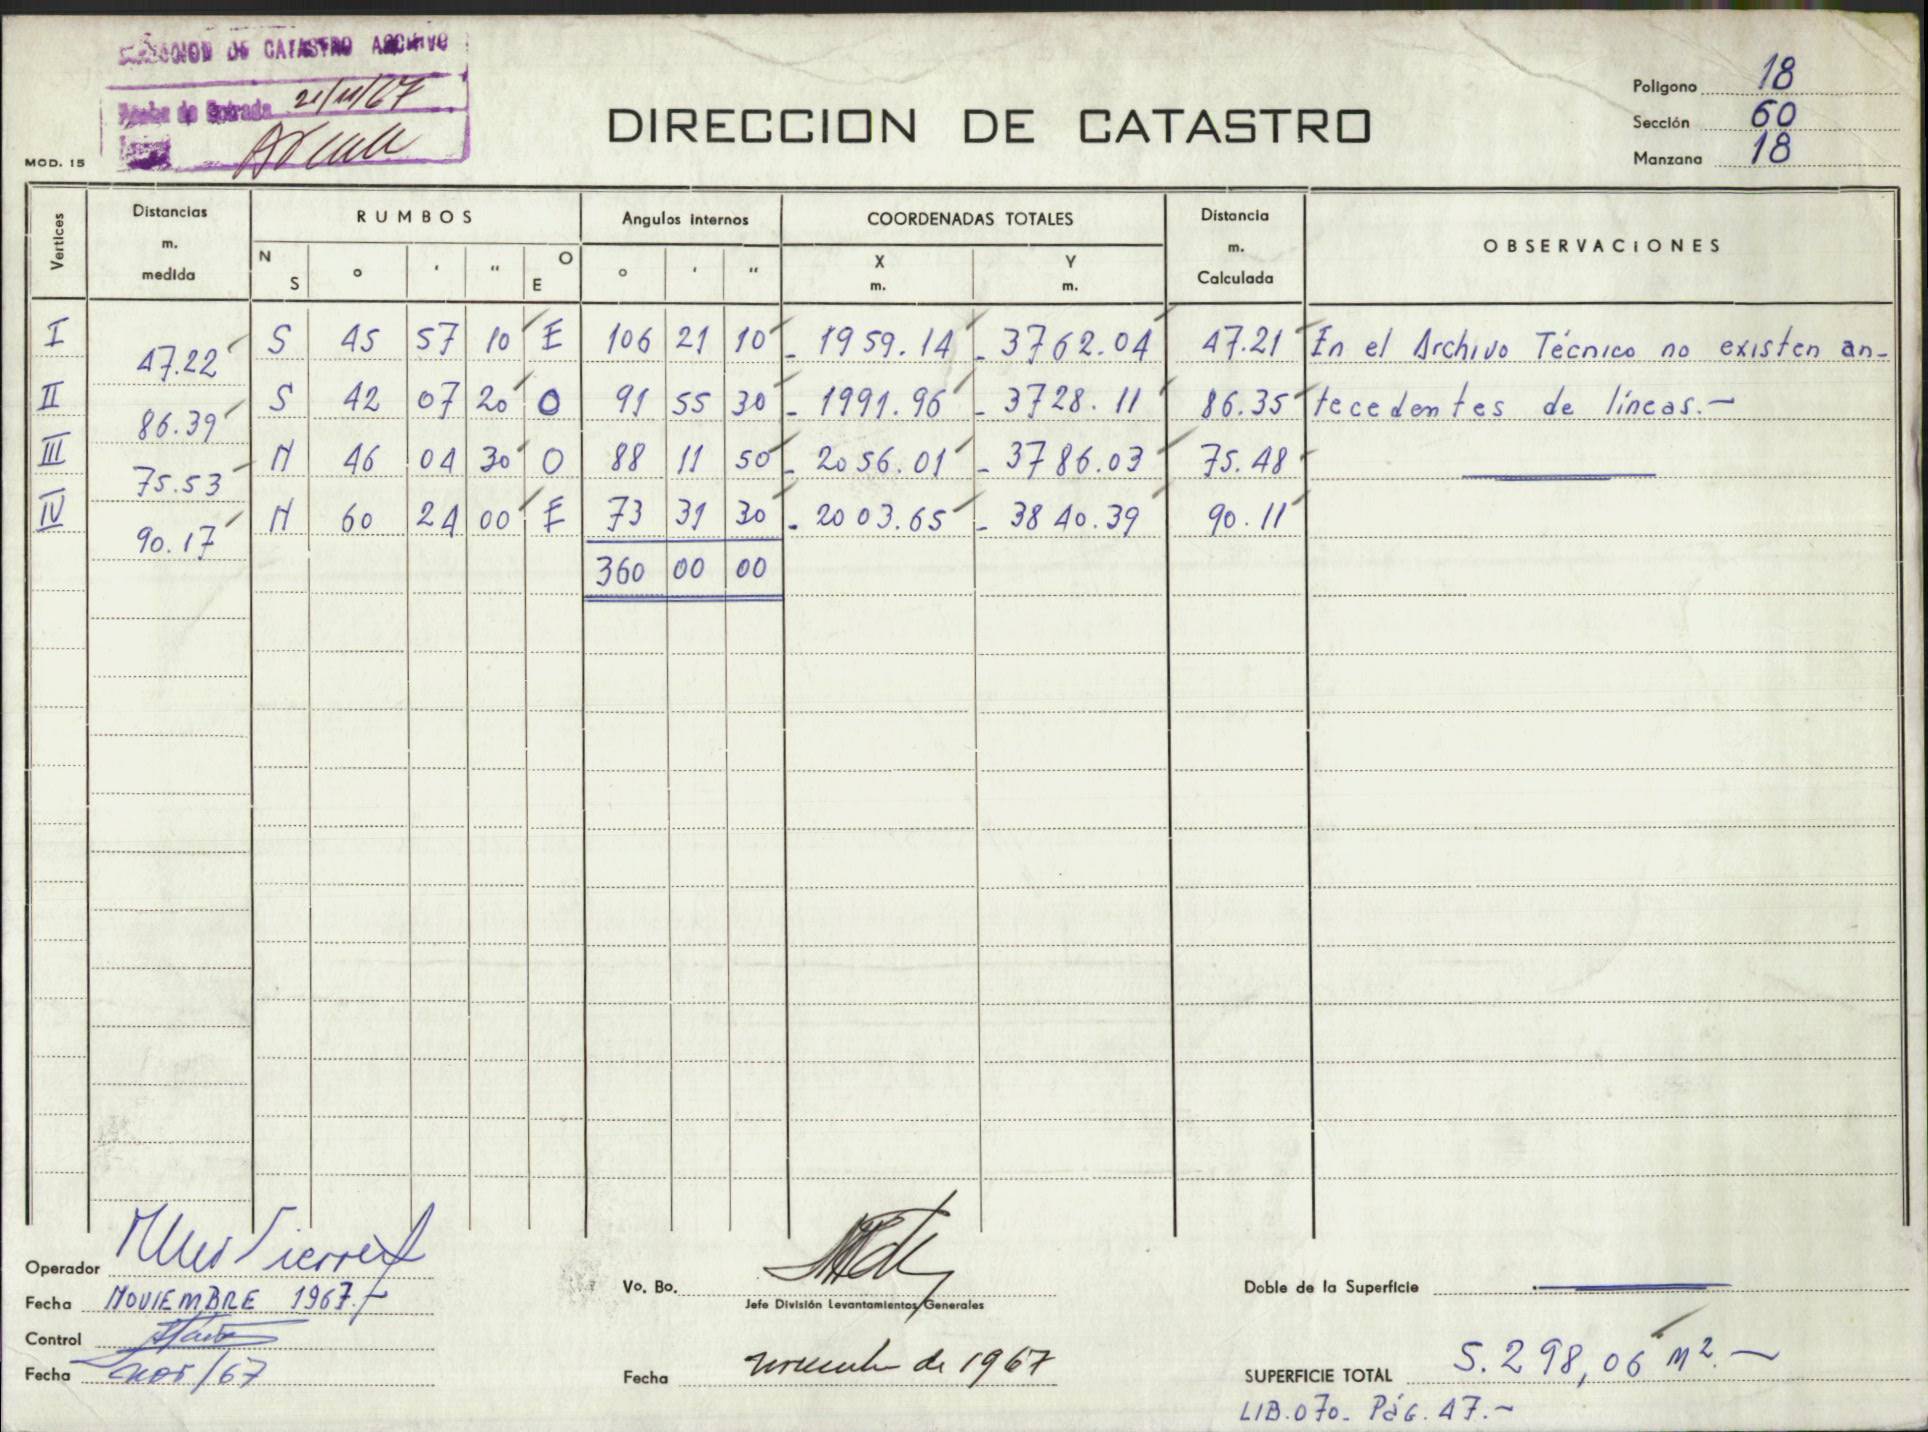 DIRECCION DE CATASTRO ARCHIVO
Fecha de Entrada 21/11/67
MOD. 15
DIRECCION DE CATASTRO
Poligono 18
Sección 60
Manzana 18
Vertices Distancias m. medida RUMBOS Angulos internos COORDENADAS TOTALES Distancia m. Calculada OBSERVACIONES
N S ° ' " O E ° ' " X m. Y m.
I 47.22 S 45 57 10 E 106 21 10 - 1959.14 - 3762.04 47.21 En el Archivo Técnico no existen an-
II 86.39 S 42 07 20 O 91 55 30 - 1991.96 - 3728.11 86.35 tecedentes de líneas.-
III 75.53 N 46 04 30 O 88 11 50 - 2056.01 - 3786.03 75.48
IV 90.17 N 60 24 00 E 73 31 30 - 2003.65 - 3840.39 90.11
360 00 00
Operador
Fecha NOVIEMBRE 1967.-
Control
Fecha nov/67
Vo. Bo.
Jefe División Levantamientos Generales
Fecha noviembre de 1967
Doble de la Superficie
SUPERFICIE TOTAL 5.298,06 m².-
LIB.070- Pág. 47.-